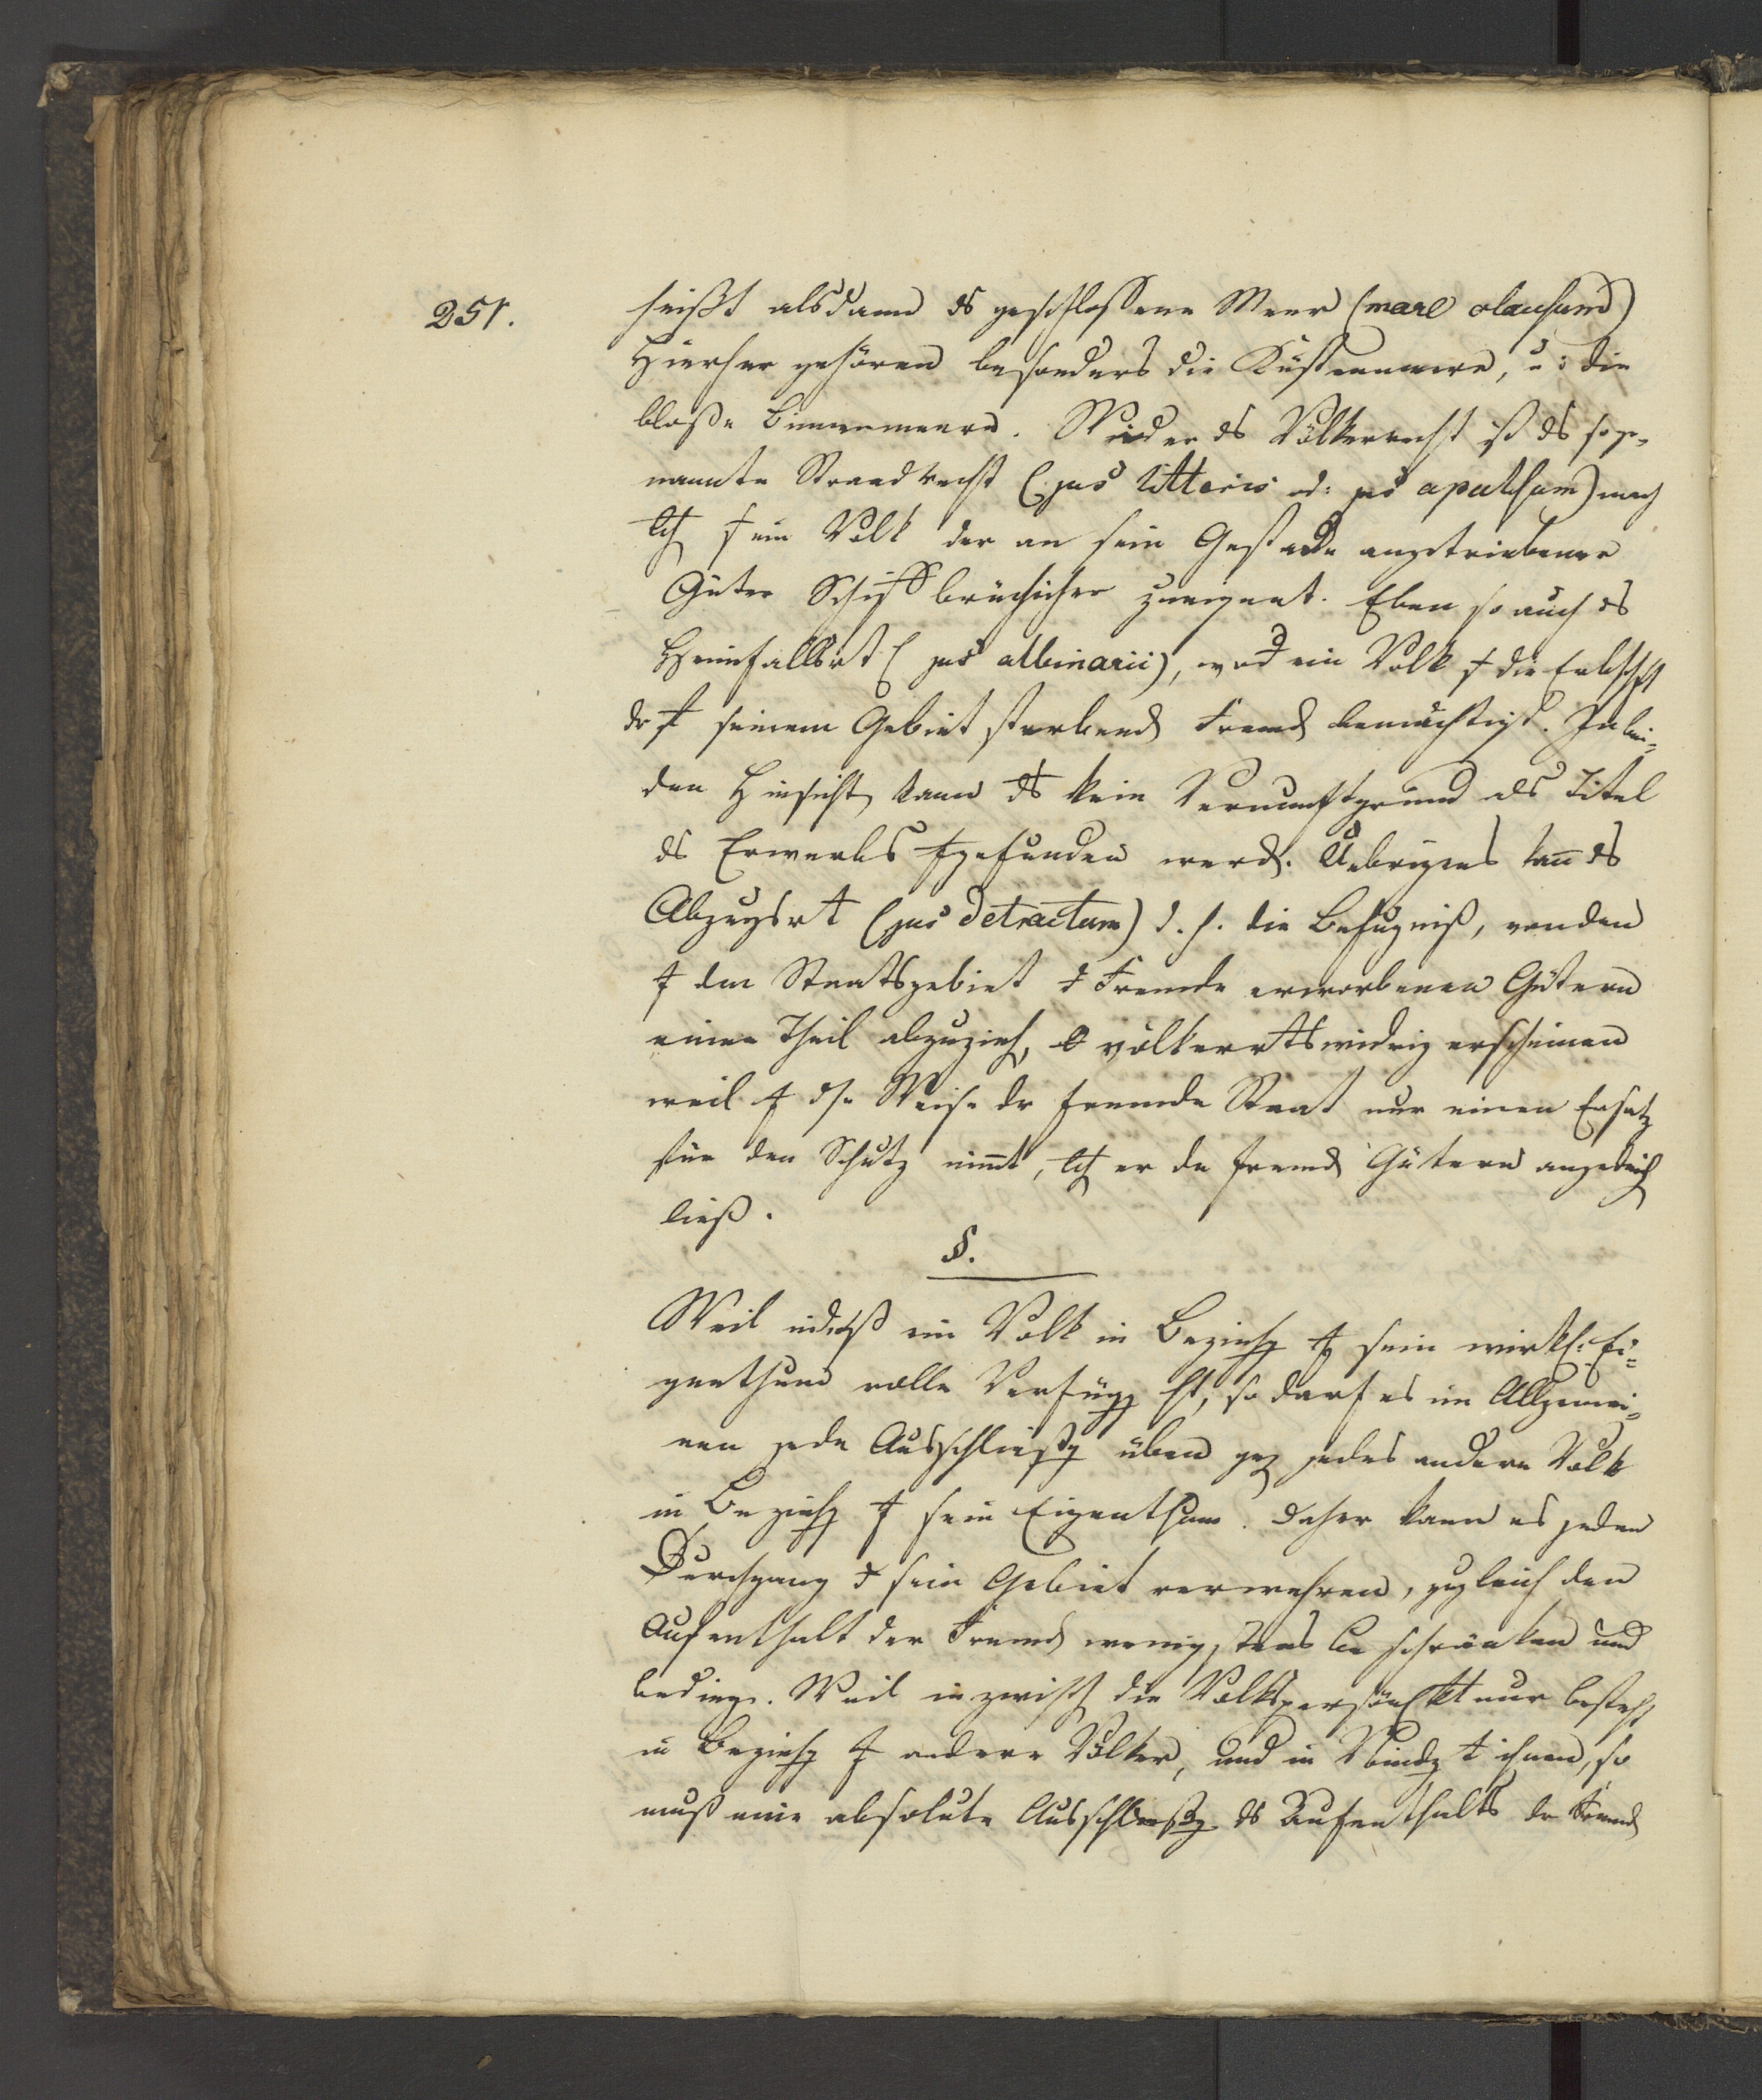 251.
heißt alsdann ds geschlossene Meer (mare clausum)
Hierher gehören besonders die Küstenmeere, u: die
bloße Binnenmeere. Wider ds Völkerrecht ist ds soge-
nannte Strandrecht (jus littoris od: jus apulsum) nach
ein Volk der an sein Gestade angetriebener
Güter Schiffbrüchicher zueignet. Eben so auch ds
Heimfallsrt (jus albinarii), ein Volk die Erbschft
dr seinem Gebiet sterbend Fremd bemächtigt. In bei-
den Hinsicht kann kein Vernunftgrund als Titel
ds Erwerbs gefunden werd. Uebrigens kañ ds
Abzugsrt (jus detractum) d. h. die Befugniß, von den
dem Staatsgebiet Fremde erworbenen Gütern
einen Theil abzuzieh, völkerrtswidrig erscheinen
weil dse Weise dr fremde Staat nur einen Ersatz
für den Schutz nim̄t, er de fremd Gütern angedeih
ließ.
§.
Weil indeß ein Volk in Beziehg sein wirkl: Ei-
genthum volle Verfügg ht, so darf es im Allgemei-
nen jede Ausschließg üben geg jedes andere Volk
in Beziehg sein Eigenthum. Daher kann es jeden
Durchgang sein Gebiet verwehren, zugleich den
Aufenthalt der Fremd wenigstens beschränken und
beding. Weil inzwisch die Volkspersönlkt nur besteht
in Beziehg andere Völker, und in ihnen, so
muß eine absolute Ausschließg ds Aufenthalts dr Fremd